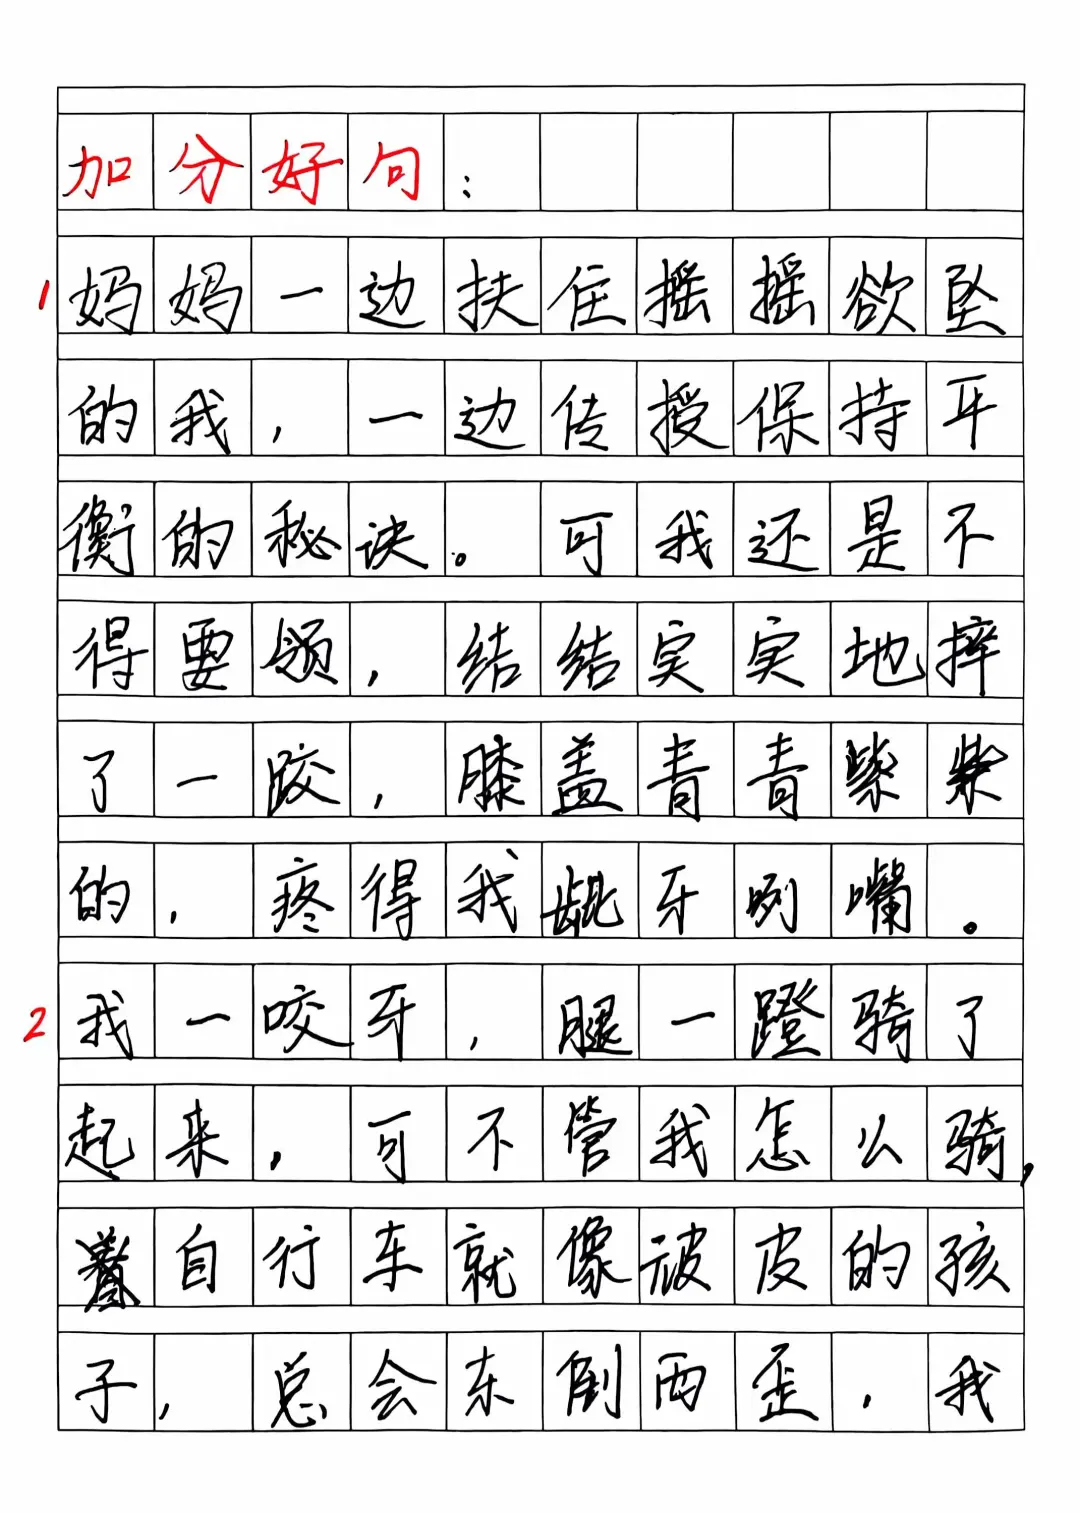 加分好句：
1 妈妈一边扶住摇摇欲坠
的我，一边传授保持平
衡的秘诀。可我还是不
得要领，结结实实地摔
了一跤，膝盖青青紫紫
的，疼得我龇牙咧嘴。
2 我一咬牙，腿一蹬骑了
起来，可不管我怎么骑，
自行车就像顽皮的孩
子，总会东倒西歪，我